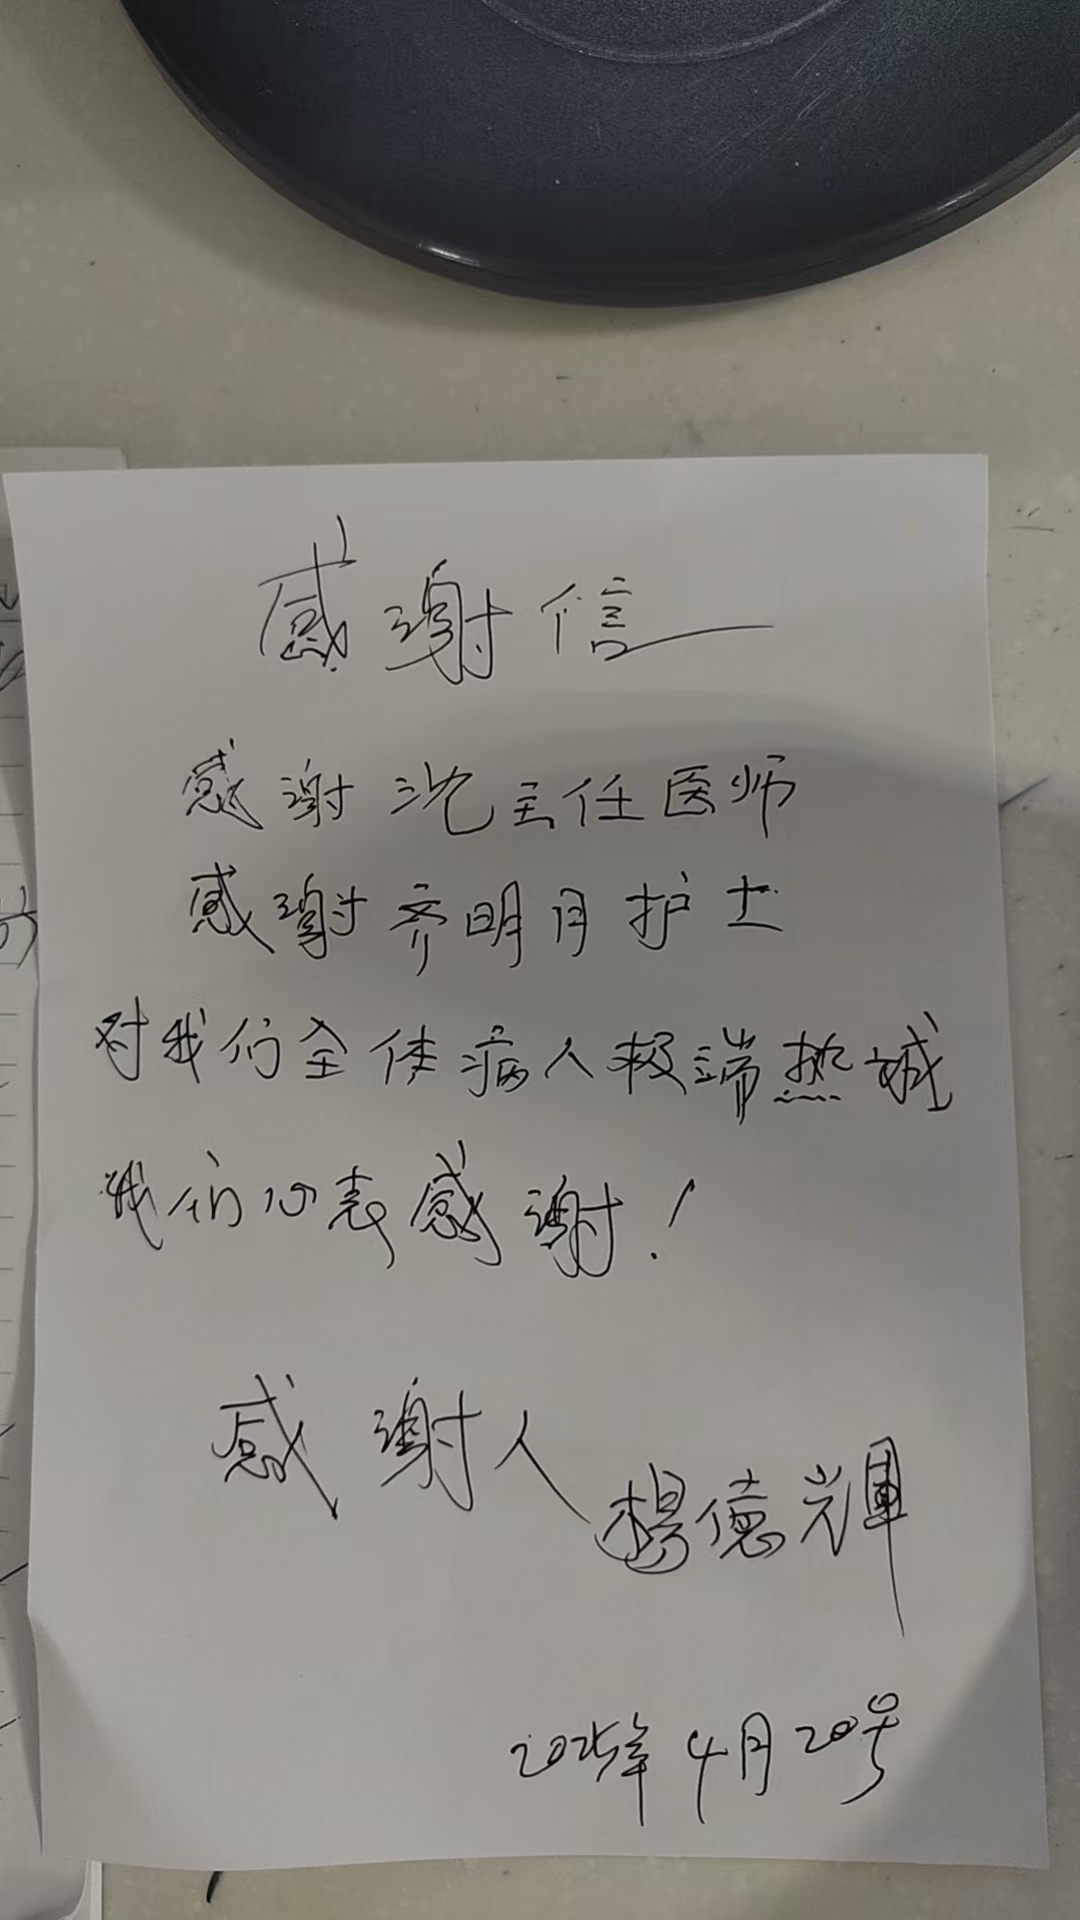 感谢信
感谢沈主任医师
感谢齐明月护士
对我们全体病人极端热诚
我们心表感谢！
感谢人
楊德輝
2025年4月20号